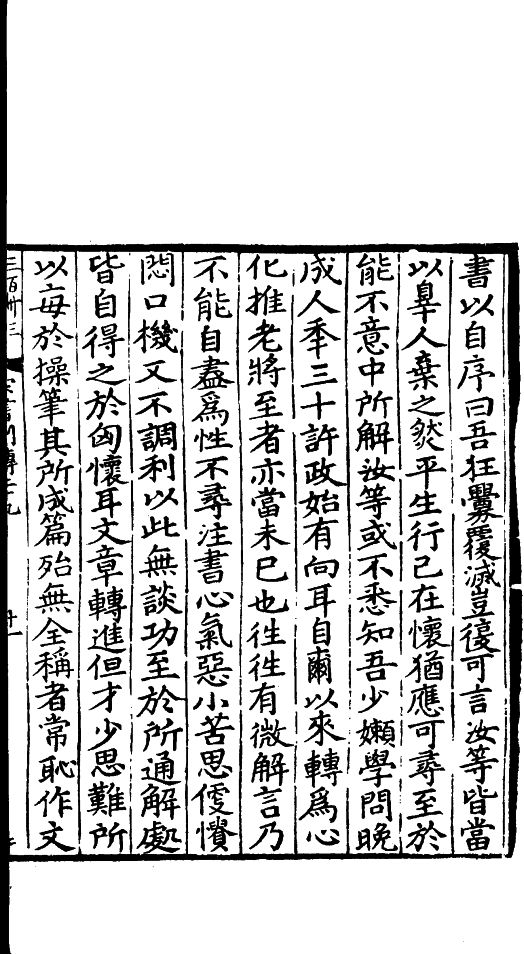 書以自序曰吾狂釁覆滅豈復可言汝等皆當
以辠人棄之然平生行己在懷猶應可尋至於
能不意中所解汝等或不悉知吾少嬾學問晚
成人秊三十許政始有向耳自爾以來轉爲心
化推老將至者亦當未已也徃徃有微解言乃
不能自盡爲性不尋注書心氣惡小苦思便憒
悶口機又不調利以此無談功至於所通解處
皆自得之於匈懷耳文章轉進但才少思難所
以每於操筆其所成篇殆無全稱者常恥作文
三百卅三